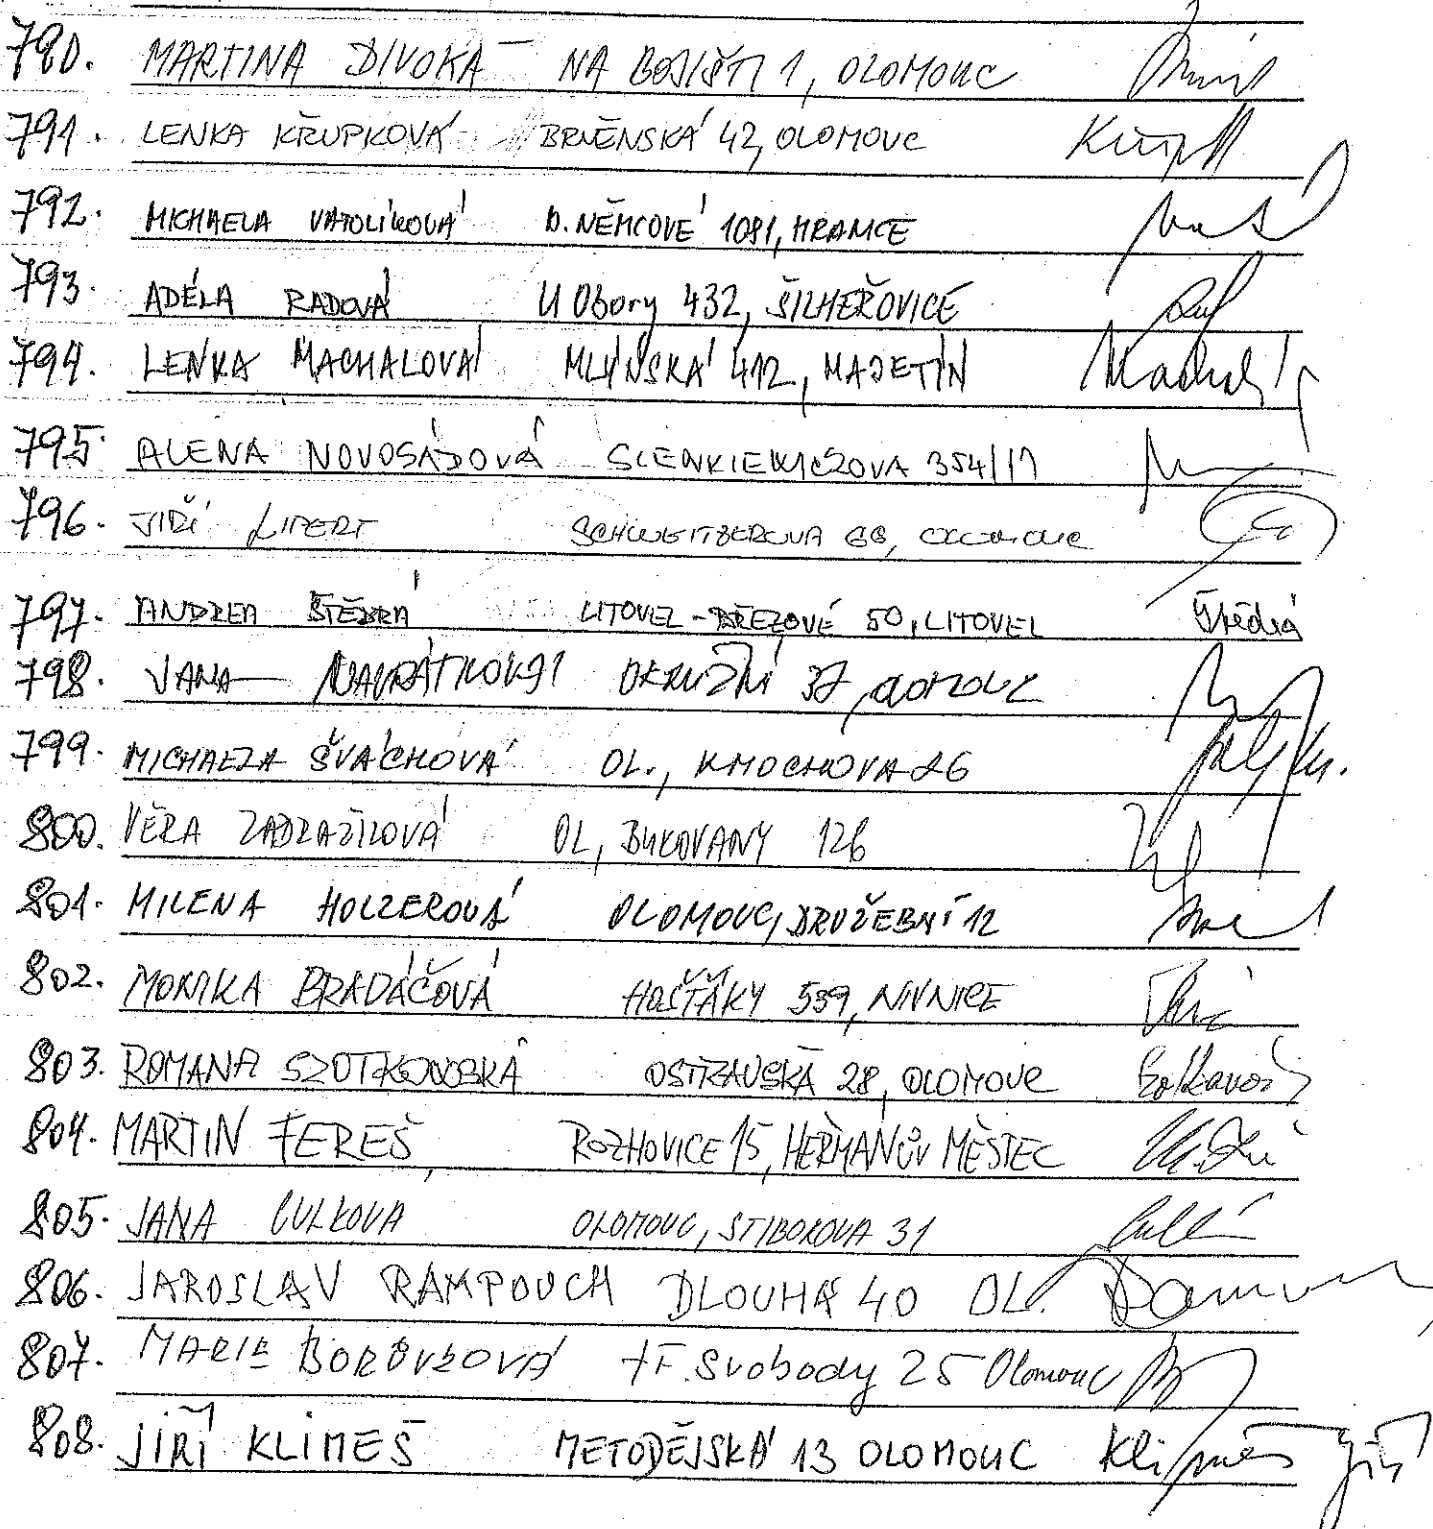 790. MARTINA DIVOKÁ NA BOJIŠTI 1, OLOMOUC
791. LENKA KŘUPKOVÁ BRNĚNSKÁ 42, OLOMOUC
792. MICHAELA VATOLÍKOVÁ B. NĚMCOVÉ 1081, HRANICE
793. ADÉLA RADOVÁ U Obory 432, ŠILHEŘOVICE
794. LENKA MACHALOVÁ MLÝNSKÁ 412, MAJETÍN
795. ALENA NOVOSÁDOVÁ SIENKIEWICZOVA 354/17
796. JIŘÍ LIPERT SCHWEITZEROVA
797. ANDREA ŠTĚDRÁ LITOVEL-BŘEZOVÉ 50, LITOVEL Štědrá
798. JANA NAVRÁTILOVÁ OKRUŽNÍ 37, OLOMOUC
799. MICHAELA ŠVÁCHOVÁ OL., KMOCHOVA 26
800. VĚRA ZADRAŽILOVÁ OL, BUKOVANY 126
801. MILENA HOLZEROVÁ OLOMOUC, DRUŽEBNÍ 12
802. MONIKA BRADÁČOVÁ HOŠŤÁKY 539, NIVNICE
803. ROMANA SZOTKOWSKÁ OSTRAVSKÁ 28, OLOMOUC
804. MARTIN FEREŠ ROZHOVICE 15, HEŘMANŮV MĚSTEC
805. JANA CULKOVA OLOMOUC, STIBOROVA 31
806. JAROSLAV RAMPOUCH DLOUHÁ 40 OL.
807. MARIE BORŮVKOVÁ tř. Svobody 25 Olomouc
808. JIŘÍ KLIMEŠ METODĚJSKÁ 13 OLOMOUC Klimeš Jiří